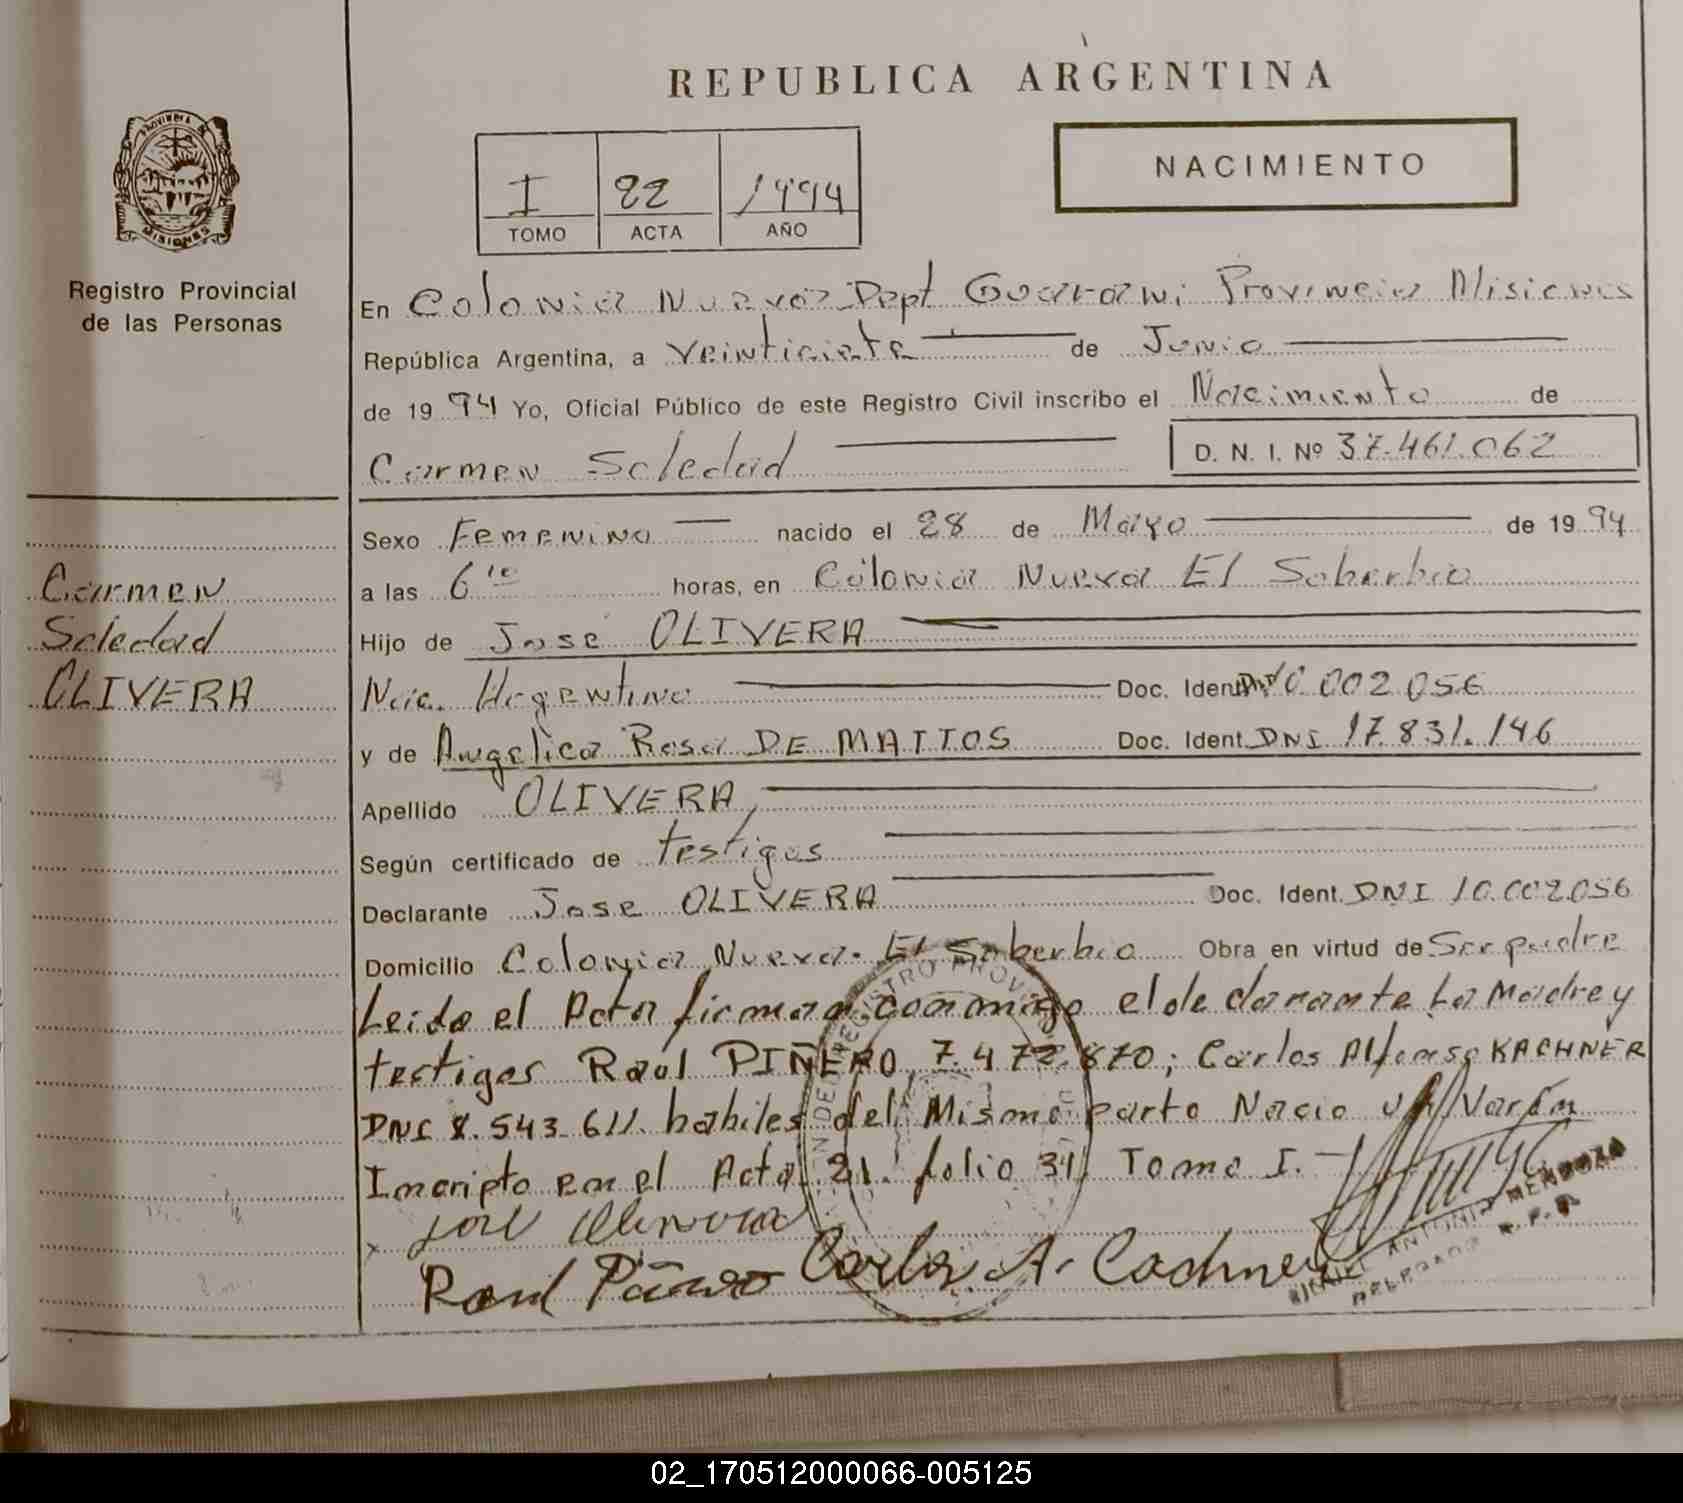 REPUBLICA ARGENTINA
PROVINCIA DE
MISIONES
Registro Provincial
de las Personas
I 22 1994
TOMO ACTA AÑO
NACIMIENTO
En Colonia Nueva Dept Guarani Provincia Misiones
República Argentina, a veinticiete de Junio
de 19 94 Yo, Oficial Público de este Registro Civil inscribo el Nacimiento de
Carmen Soledad D. N. I. Nº 37.461.062
Sexo Femenino nacido el 28 de Mayo de 19 94
a las 6 10 horas, en Colonia Nueva El Soberbio
Hijo de Jose OLIVERA
Nac. Argentino Doc. Ident. 10.002.056
y de Angelica Rosa DE MATTOS Doc. Ident. DNI 17.831.146
Apellido OLIVERA,
Según certificado de testigos
Declarante Jose OLIVERA Doc. Ident. DNI 10.002.056
Domicilio Colonia Nueva. El Soberbio Obra en virtud de Ser padre
Leida el Acta firman conmigo el declarante La Madre y
testigos Raul PIÑERO, 7.472.870; Carlos Alfonso KACHNER
DNI 8.543.611. habiles del Mismo parto Nacio un Varón
Inscripto en el Acta 21. folio 31 Tomo I.
Carmen
Soledad
OLIVERA
Jose Olivera
Raul Piñero Carlos A. Cachner
ANTONIO MENDOZA
DELEGADO R. P. P.
REGISTRO PROV
02_170512000066-005125